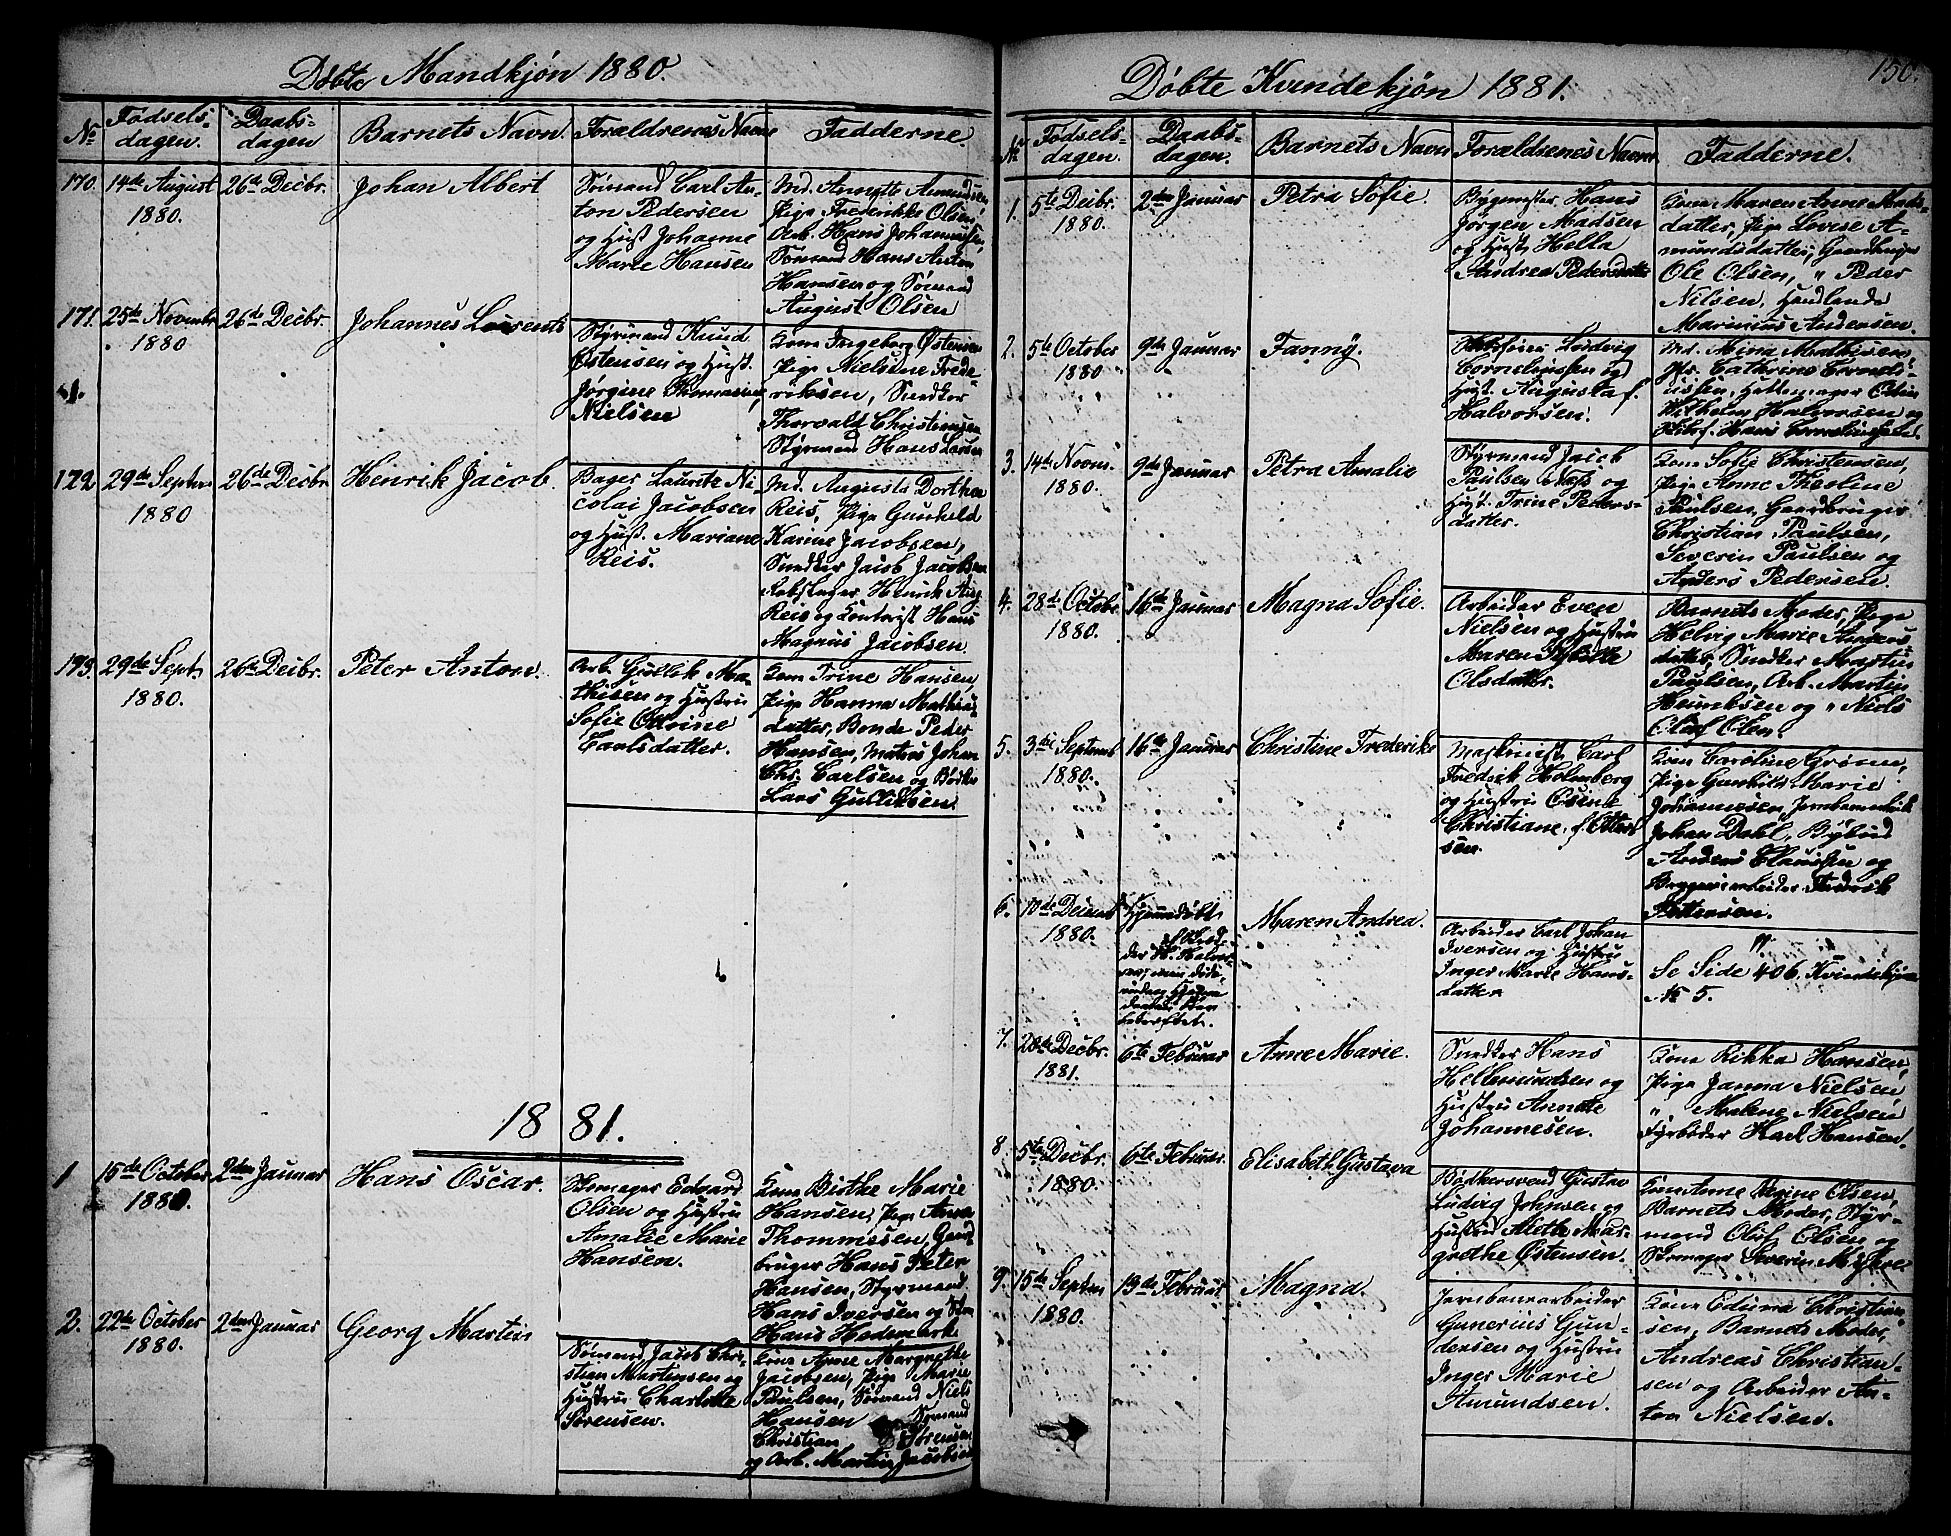 Døbte Mandkjøn 1880.
No
Fødsels-
dagen.
Daabs-
dagen
Barnets Navn.
Forældrenes Navne
Fadderne.
170. 14de August
1880.
26de Decbr.
Johan Albert
Sømand Carl An-
ton Pedersen
og Hust Johanne
Marie Hansen
Md. Annette Amundsen
Pige Frederikke Olsen,
Arb. Hans Johannessen,
Sømand Hans Anton
Hansen og Sømand
August Olsen
171. 25de Novembr
1880
26de Decbr.
Johannes Laurents
Styrmand Knud
Østensen og Hust.
Jørgine Thomasine
Nielsen
Kone Ingeborg Østensen
Pige Nielsine Frede-
riksen, Snedker
Thorvald Christiansen
Styrmand Hans Larsen
172. 29de Septbr
1880
26de Decbr
Henrik Jacob.
Bager Lauritz Ni-
colai Jacobsen
og Hust. Mariane
Reis.
Md. Augusta Dorthea
Reis, Pige Gunhild
Karine Jacobsen,
Snedker Jacob Jacobsen
Rebslager Henrik Aug.
Reis og Kontorist Hans
Magnus Jacobsen
173. 29de Septr.
1880.
26de Decbr.
Peter Anton.
Arb. Gullik Ma-
thisen og Hustru
Sofie Olvine
Carlsdatter.
Kone Trine Hansen
Pige Hanna Mathis-
datter, Bonde Peder
Hansen, Matros Johan
Chr. Carlsen og Bødker
Lars Gulliksen.
1881.
1 15de October
1880.
2den Januar
Hans Oscar.
Edvard
Olsen og Hustru
Amalie Marie
Hansen.
Kone Birthe Marie
Hansen, Pige Anne
Thommesen, Gaard-
bruger Hans Peter
Hansen, Styrmand
Hans Iversen og
Hans Hedemark.
2. 22de October
1880.
2den Januar
Georg Martin
Sømand Jacob Chri-
stian Martinsen og
Hustru Charlotte
Sørensen.
Kone Anne Margrethe
Jacobsen, Pige Marie
Paulsen, Sømand Niels
Hansen Sømand
Christian Sørensen
og Arb. Martin Jacobsen
Døbte Kvindekjøn 1881.
150.
No
Fødsels-
dagen.
Daabs-
dagen.
Barnets Navn
Forældrenes Navne
Fadderne.
1. 5te Decbr.
1880.
2den Januar
Petra Sofie.
Bygmester Hans
Jørgen Madsen
og Hust. Helta
Andrea Pedersdatter
Kone Maren Anne Mads-
datter, Pige Lovise A-
mundsdatter, Gaardbruger
Ole Olsen, " Peder
Nilsen, Handlende
Marinius Andersen.
2. 5te October
1880
9de Januar
Fanny.
Ludvig
Corneliussen og
Hust. Augusta f.
Halvorsen.
Md. Mina Mathisen,
Cathrine Corneli-
ussen, Hattemager
Wilhelm Halvorsen og
Hans Corneliussen.
3. 14de Novm.
1880.
9de Januar
Petra Amalie
Styrmand Jacob
Paulsen Næss og
Hust. Trine Peders-
datter.
Kone Sofie Christensen,
Pige Anne Theoline
Paulsen, Gaardbruger
Christian Paulsen,
Severin Paulsen og
Anders Pedersen.
4. 28de Octobr.
1880.
16de Januar
Magna Sofie.
Arbeider Even
Nielsen og Hustru
Maren
Olsdatter.
Barnets Moder, Pige
Helvig Marie Anders-
datter, Snedker Martin
Paulsen, Arb. Martin
Henriksen og " Niels
Olaf Olsen.
5. 3die Septemb
1880.
16de Januar
Christine Frederikke
Maskinist Carl
Fredrik Holmberg
og Hustru Olsine
Christiane, f. Otter-
sen.
Kone Caroline Grønn,
Pige Gunhild Marie
Johannesen,
Johan Dahl, Bybud
Anders Claussen og
Bryggeriarbeider Fredrik
Pettersen.
6. 10de Decemb
1880.
Hjemmedøbt
Maren Andrea.
Arbeider Carl Johan
Iversen og Hustru
Inger Marie Hans-
datter.
Se Side 406. Kvindekjøn
No 5.
7. 20de Decbr.
1881.
6te Februar
Anne Marie.
Snedker Hans
Hellemundsen og
Hustru Annette
Johannesen.
Kone Rikka Hansen,
Pige Janna Nielsen
", Malene Nielsen
Fyrbøder Karl Hansen.
8. 5te Decbr.
1880.
6te Februar.
Elisabeth Gustava
Bødkersvend Gustav
Ludvig Johnsen og
Hustru Mette Mar-
grethe Østensen.
Kone Anne Regine Olsen,
Barnets Moder, Styr-
mand Olaf Olsen og
Severin
9. 15de Septem
1880.
13de Februar
Magna.
Jernbanearbeider
Gunerius Gun-
dersen og Hustru
Inger Marie
Amundsen.
Kone Edina Christian-
sen, Barnets Moder,
Andreas Christian-
sen og Arbeider An-
ton Nielsen.